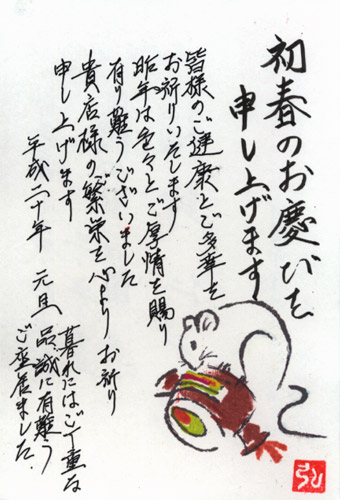 初春のお慶びを
申し上げます
皆様のご健康とご多幸を
お祈りいたします
昨年は色々とご厚情を賜り
有り難うございました
貴店様のご繁栄を心よりお祈り
申し上げます
平成二十年 元旦
暮れにはご丁重な
品、誠に有難う
ご座居ました.